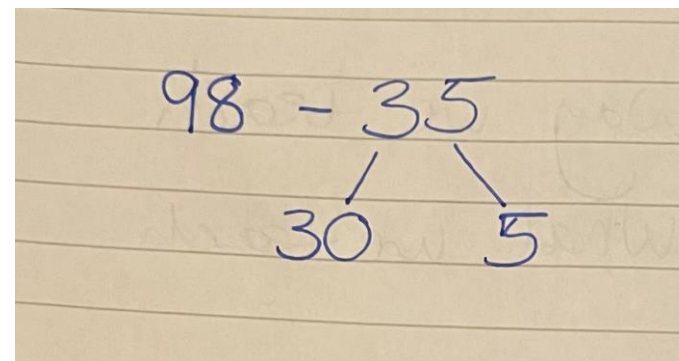 98 - 35
30 5